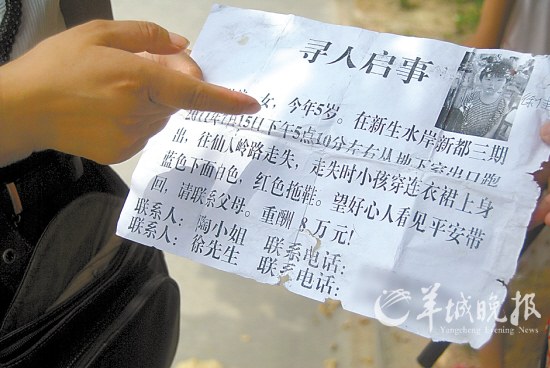 寻人启事
女，今年5岁。在新生水岸新都三期
2011年7月15日下午5点10分左右从地下室出口跑
出，往仙人岭路走失，走失时小孩穿连衣裙上身
蓝色下面白色，红色拖鞋。望好心人看见平安带
回，请联系父母。重酬 8万元！
联系人：陶小姐 联系电话：
联系人：徐先生 联系电话：
羊城晚报
Yangcheng Evening News